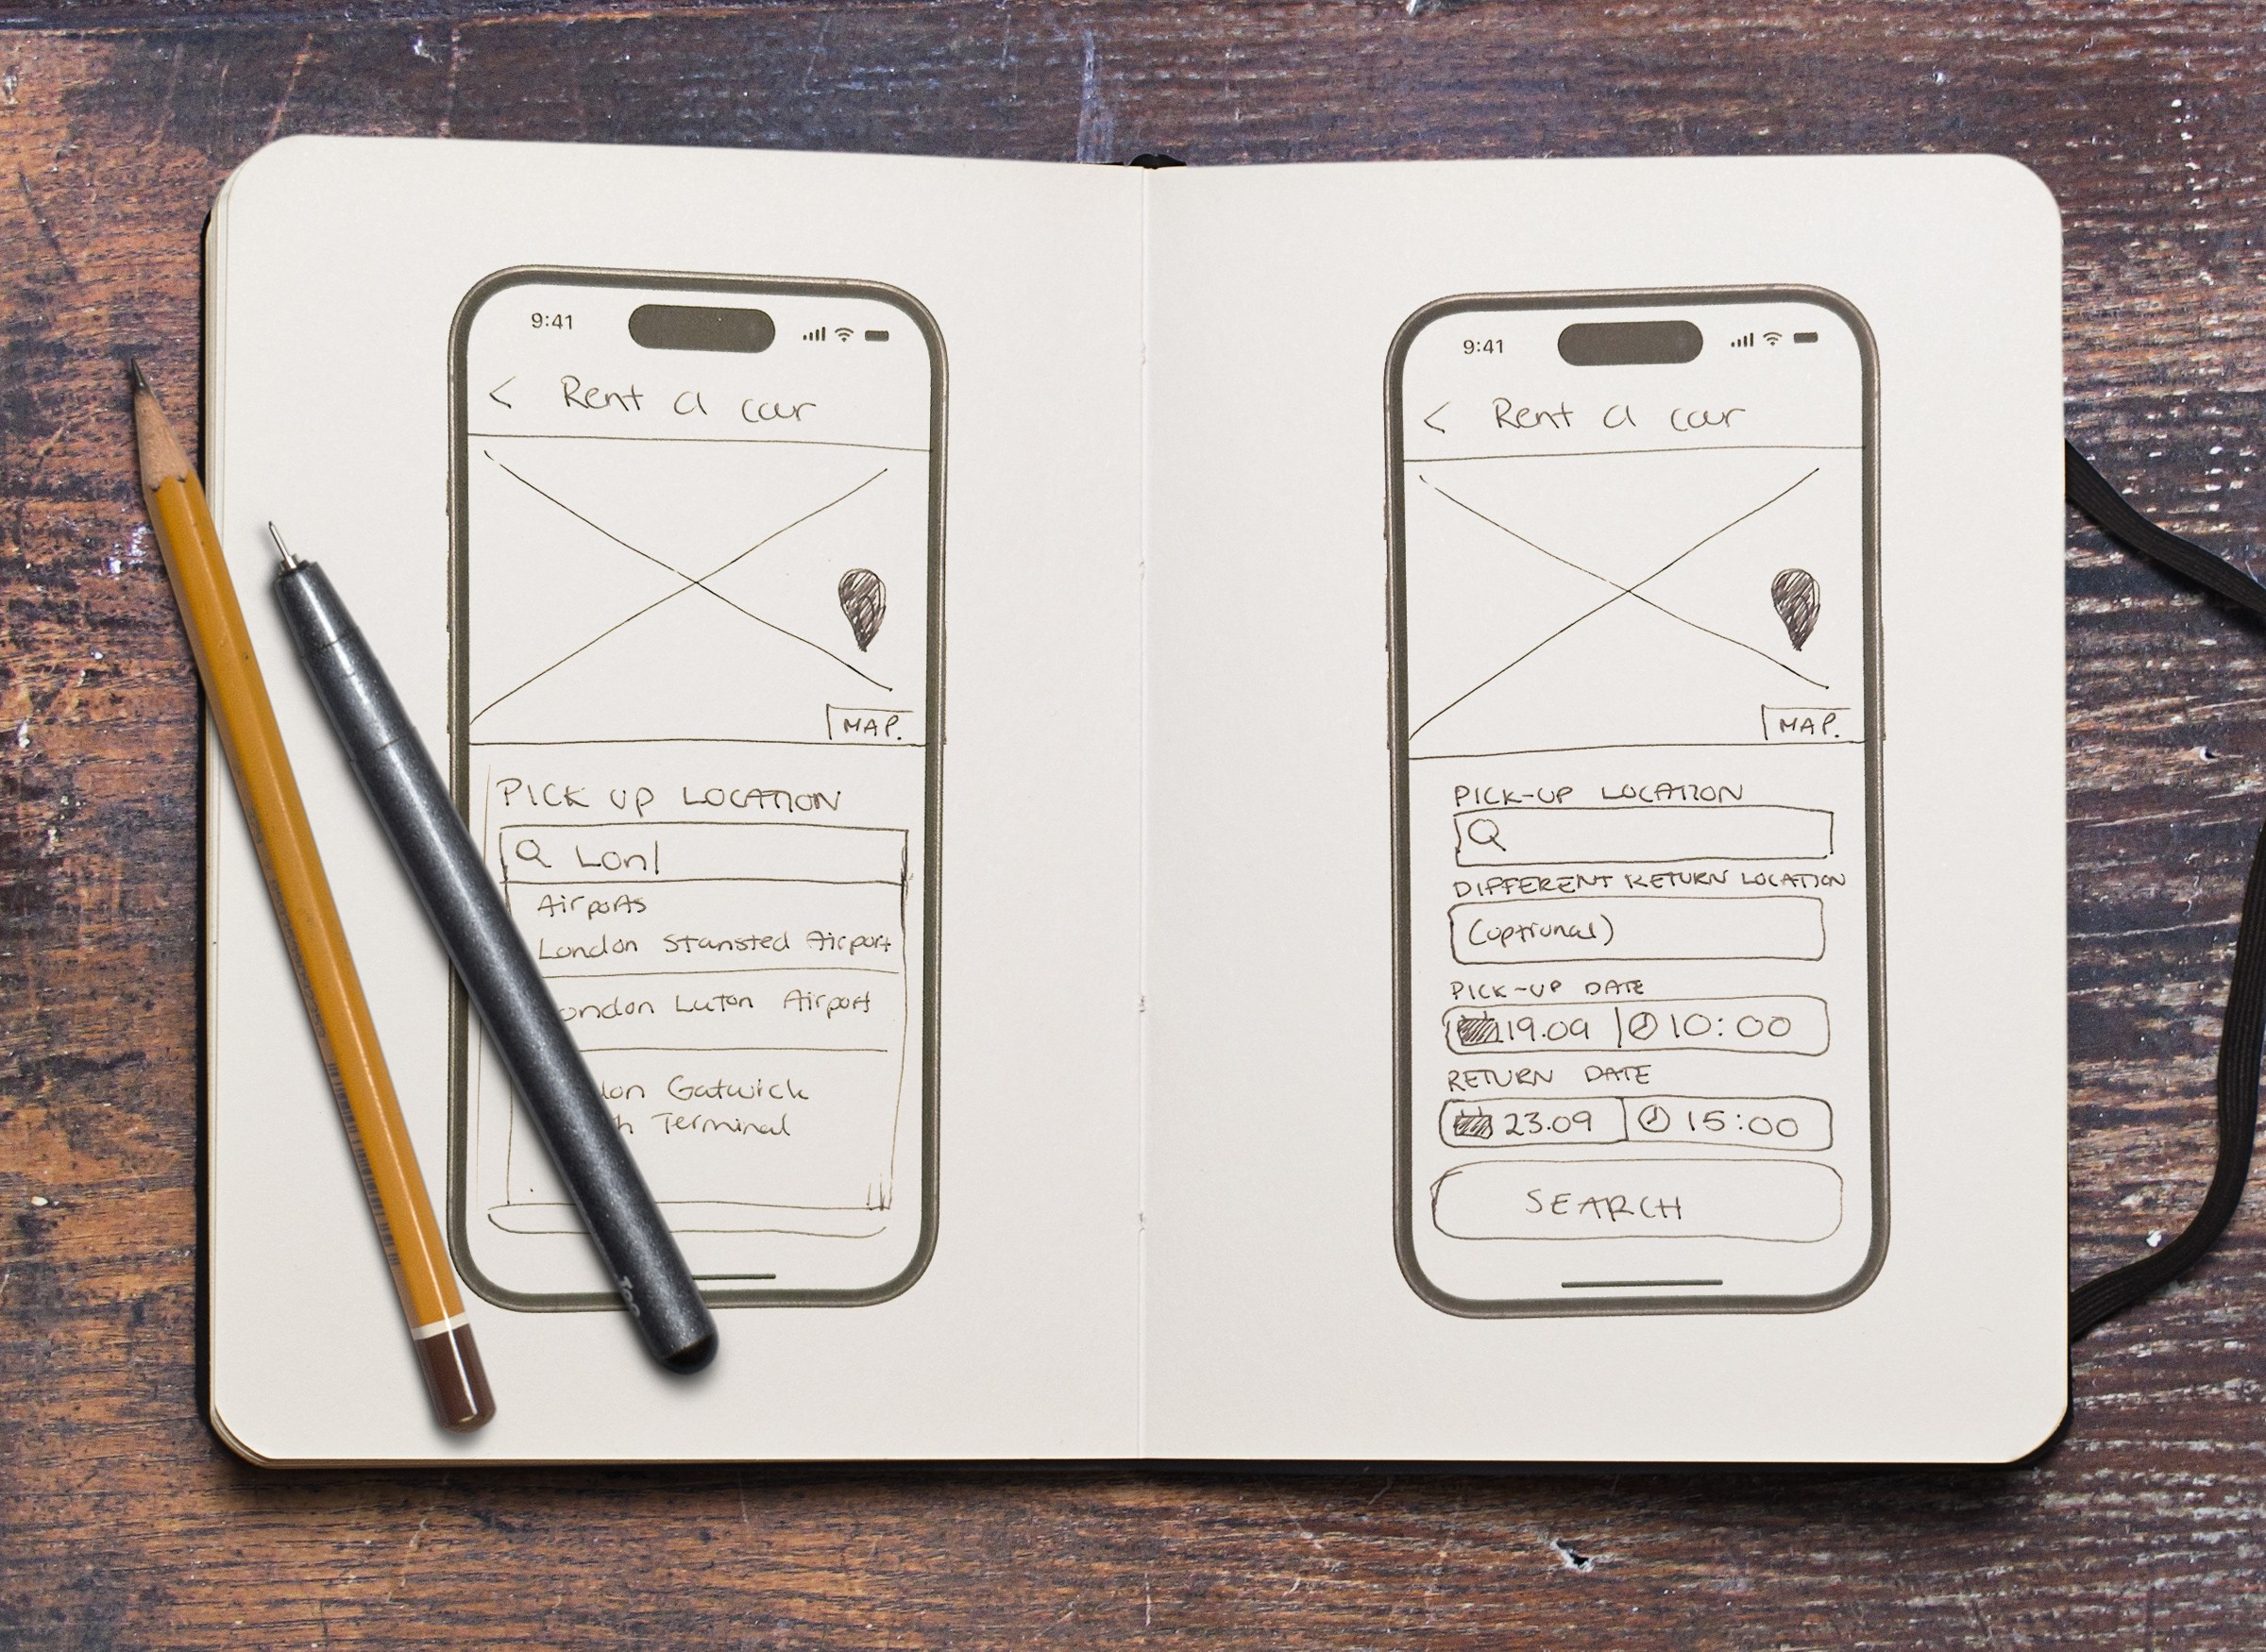 9:41
< Rent a car
MAP.
PICK UP LOCATION
Lon|
Airports
London Stansted Airport
ondon Luton Airport
don Gatwick
h Terminal
9:41
< Rent a car
MAP.
PICK-UP LOCATION
DIFFERENT RETURN LOCATION
(optional)
PICK-UP DATE
19.09 | 10:00
RETURN DATE
23.09 | 15:00
SEARCH